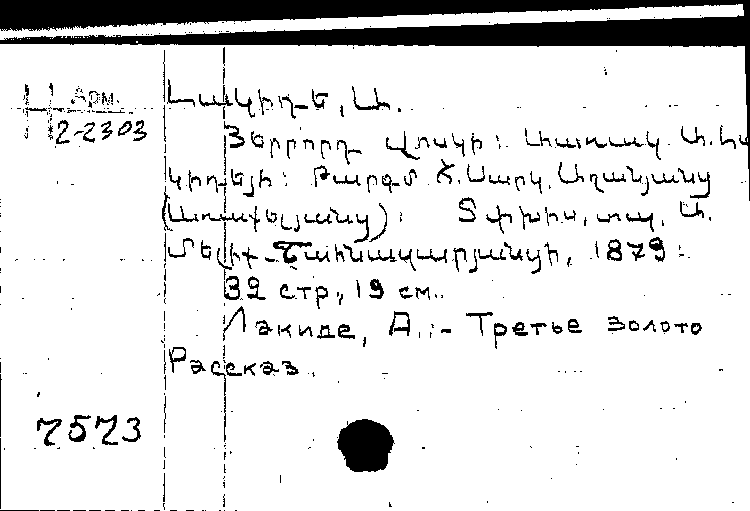 Арм.
H 2-2303
Լակիդե, Ա.
Յերրորդ վոսկի: Առակ. Ա. Լա
կիդեյի: Թարգմ. Հ. Սարկ. Աղանյանց
(Առաքելյանց): Տփխիս, տպ. Ա.
Մելիք-Շահնազարյանցի, 1879:
32 стр., 19 см.
Лакиде, А.:- Третье золото
Рассказ.
7573